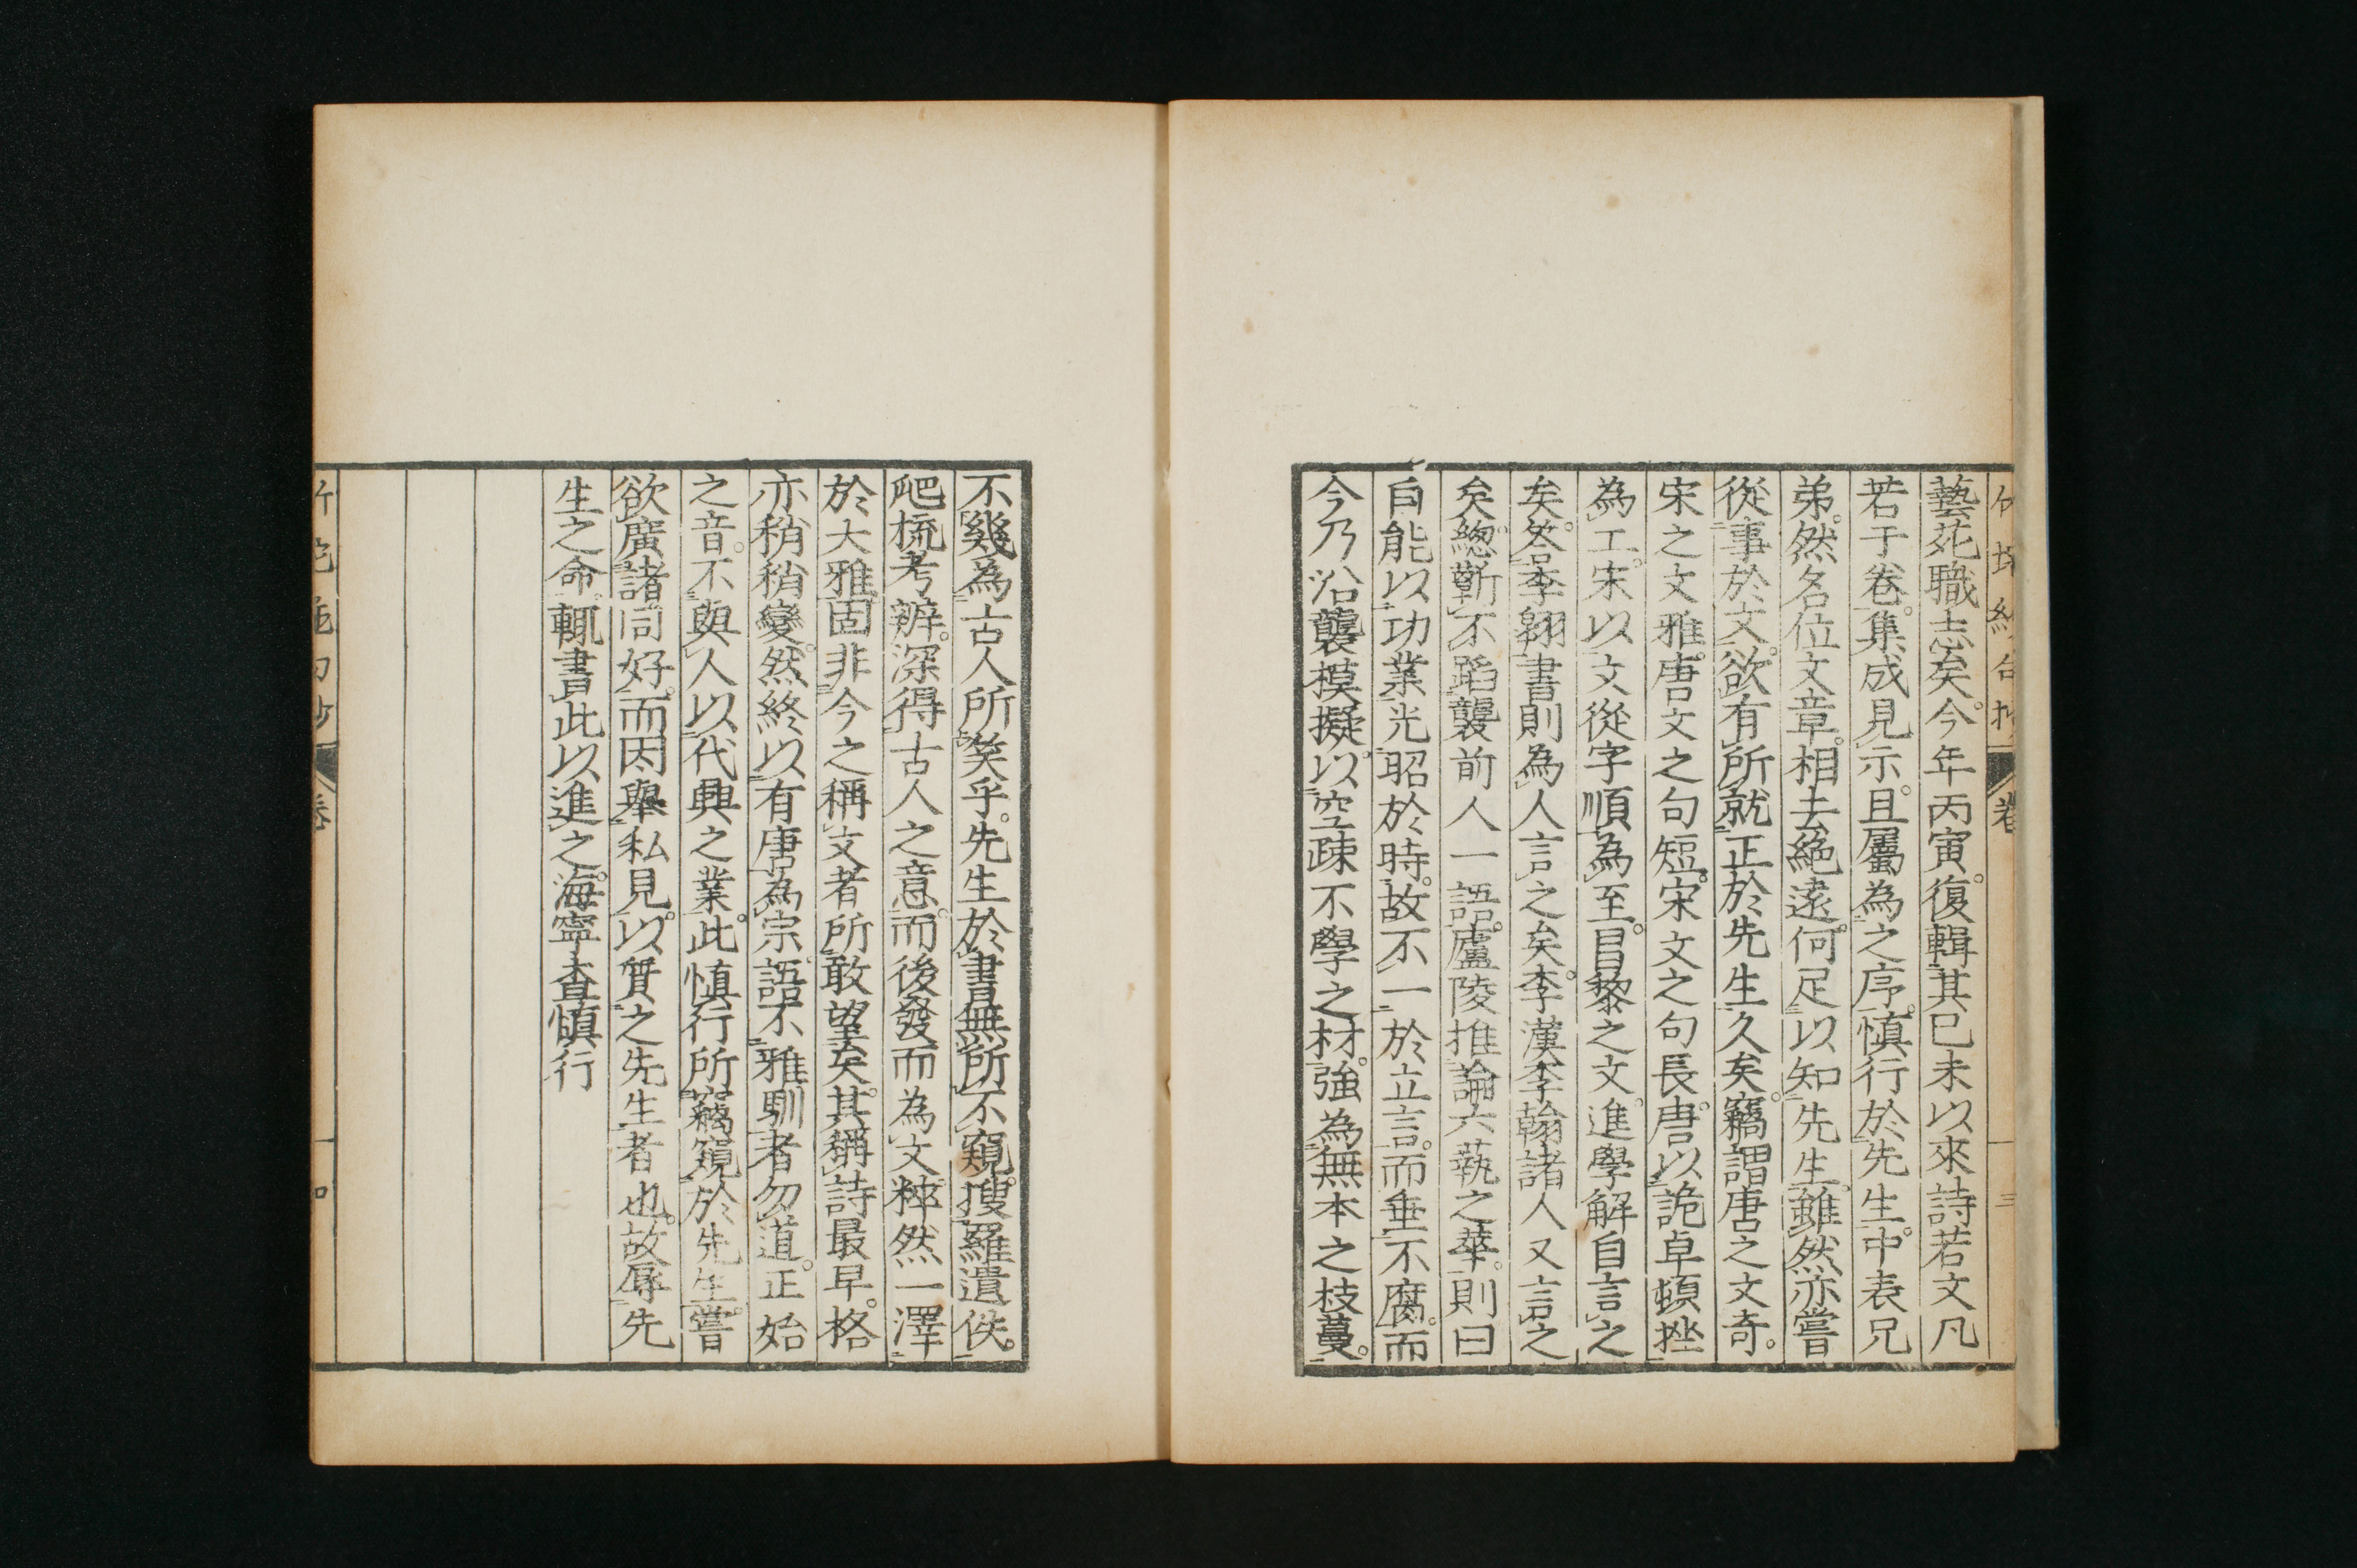 藝苑職志矣今年丙寅復輯其已未以來詩若文凡
若干卷集成見示且屬為之序慎行於先生中表兄
弟然名位文章相去絕遠何足以知先生雖然亦嘗
從事於文欲有所就正於先生久矣竊謂唐之文奇
宋之文雅唐文之句短宋文之句長唐以詭卓頓挫
為工宋以文從字順為至昌黎之文進學解自言之
矣答李翱書則為人言之矣李漢李翰諸人又言之
矣總蘄不蹈襲前人一語廬陵推論六蓺之華則曰
自能以功業光昭於時故不一於立言而垂不腐而
今乃沿襲模擬以空疎不學之材強為無本之枝蔓
不幾為古人所笑乎先生於書無所不窺搜羅遺佚
爬梳考辨深得古人之意而後發而為文粹然一澤
於大雅固非今之稱文者所敢望矣其稱詩最早格
亦稍稍變然終以有唐為宗語不雅馴者勿道正始
之音不與人以代興之業此慎行所竊窺於先生嘗
欲廣諸同好而因舉私見以質之先生者也故辱先
生之命輒書此以進之海寧查慎行